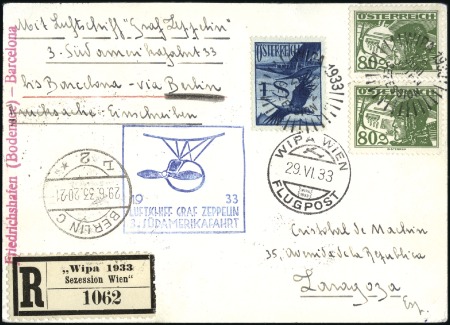 Mit Luftschiff "Graf Zeppelin"
3. Südamerikafahrt 33
bis Barcelona - via Berlin
Drucksache - Einschreiben
Friedrichshafen (Bodensee) – Barcelona
ÖSTERREICH
1 S
ÖSTERREICH
80g
ÖSTERREICH
80g
1933
WIPA WIEN
29.VI.33
FLUGPOST
BERLIN C 2
29.6.33.20-21
19 33
LUFTSCHIFF GRAF ZEPPELIN
3. SÜDAMERIKAFAHRT
Cristobal de Machin
35, Avenida de la Republica
Zaragoza
Esp.
R
„Wipa 1933
Sezession Wien"
1062